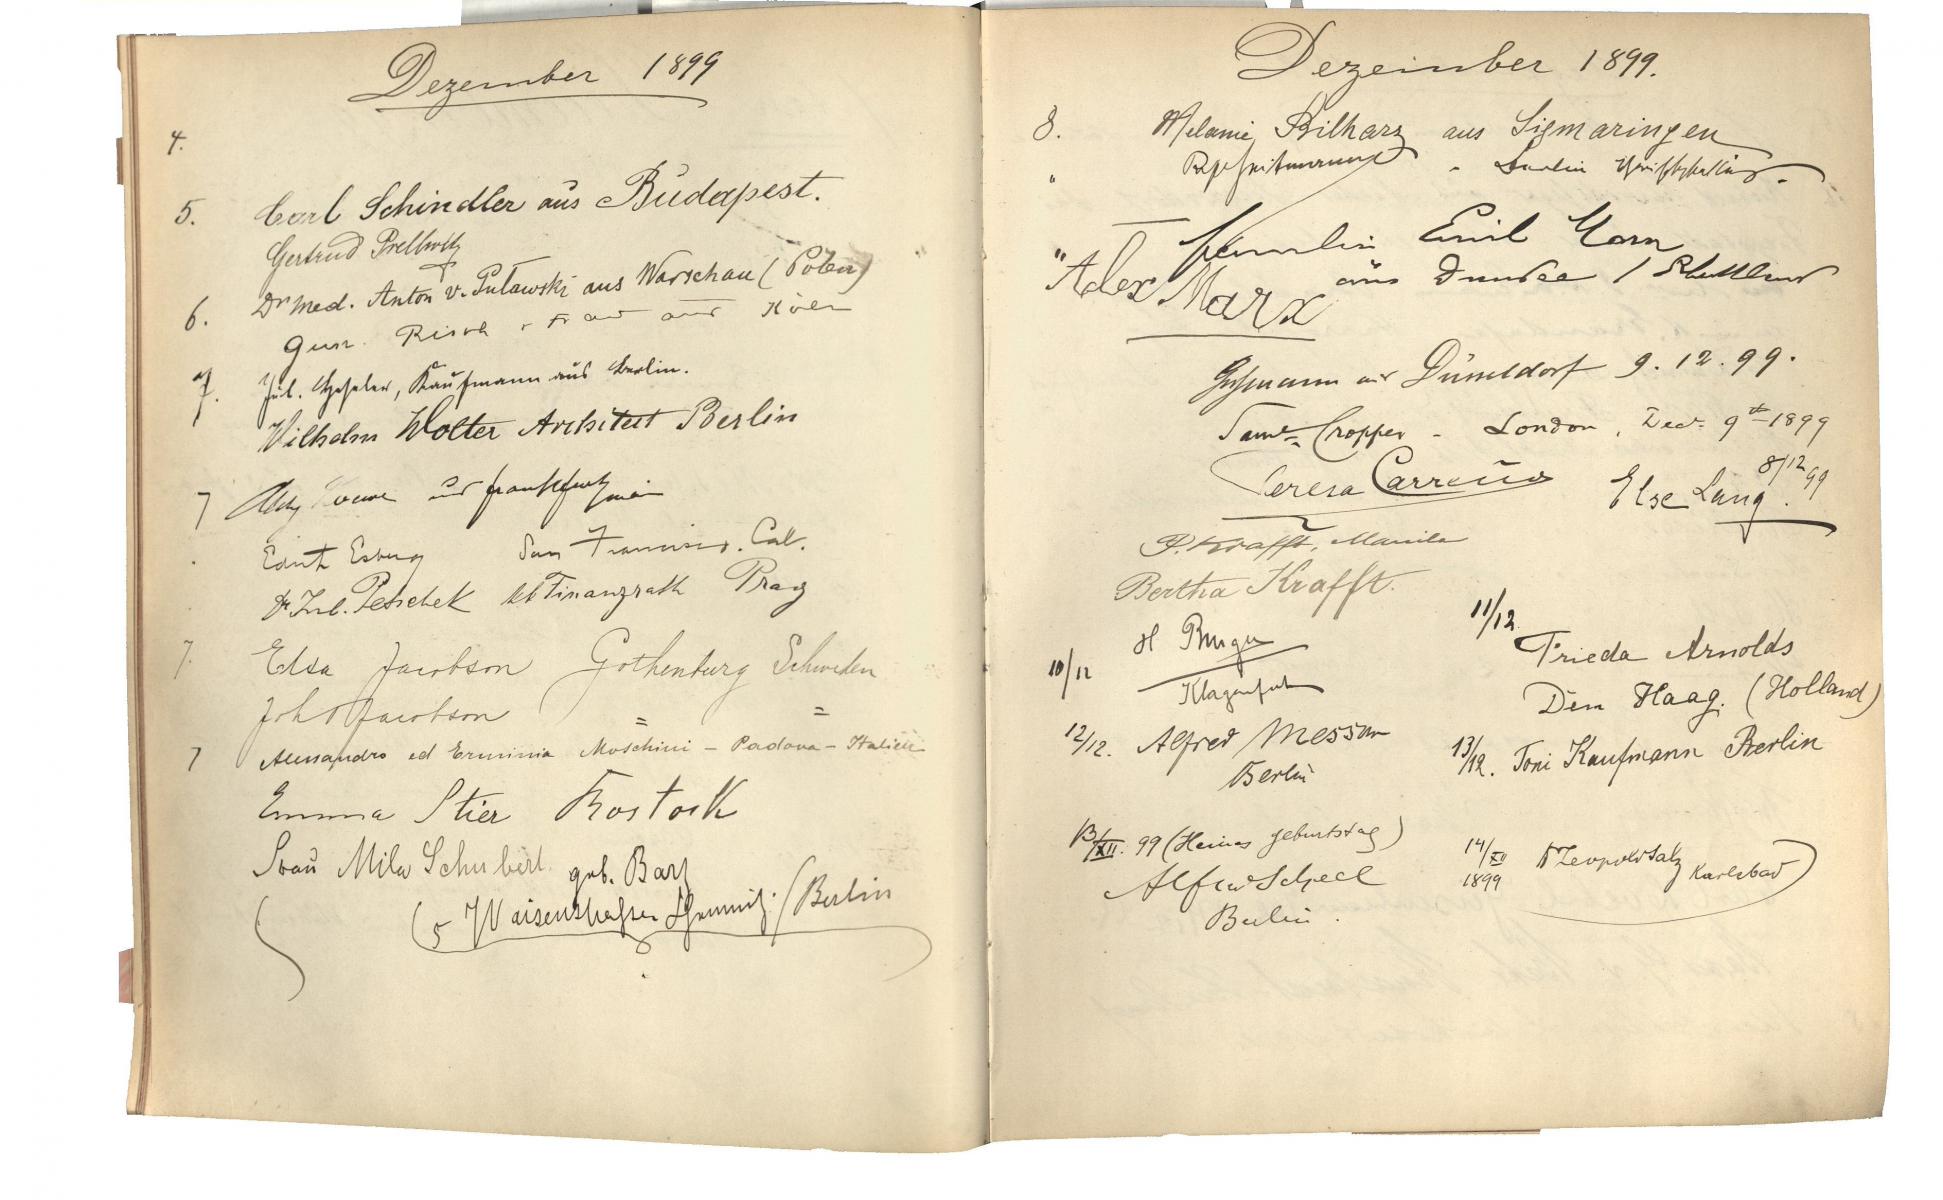 Dezember 1899
4.
5. Carl Schindler aus Budapest.
Gertrud Prellwitz
Dr med. Anton v. Puławski aus Warschau (Polen)
6. Risch Frau aus Köln
7. Jul. Kaufmann aus Berlin.
Wilhelm Wolter Architect Berlin
7 aus Frankfurt
Edith Esberg San Francisco. Cal.
Dr Jul. Petschek Finanzrath Prag
7. Elsa Jacobson Gothenburg Schweden
John Jacobson = =
7 Alessandro ed Erminia Moschini - Padova - Italien
Emma Stier Rostock
Frau Mila Schubert geb. Barf
(5 Chemnitz. / Berlin
Dezember 1899.
8. Melanie Bilharz aus Sigmaringen
" Berlin
Familie Emil
" Alex Marx
aus Dundee / Schottland
aus Düsseldorf 9. 12. 99.
Saml. Cropper - London, Dec. 9th 1899
Teresa Carreño
Else Lang. 8/12 99
P. Krafft, Manila
Bertha Krafft.
10/12 H Burger
Klagenfurt
11/12. Frieda Arnolds
Den Haag. (Holland)
12/12. Alfred Messow
Berlin
13/12. Toni Kaufmann Berlin
13/XII. 99 (Heines Geburtstag)
Alfred Scheel
Berlin.
14/XII 1899 Leopold Salz Karlsbad